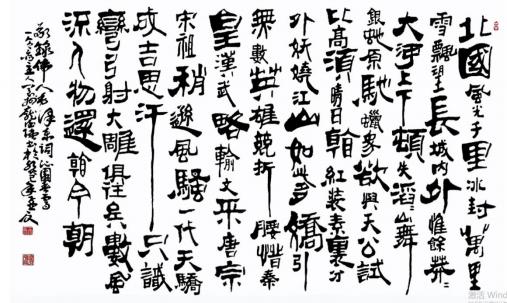 北國風光千里冰封萬里
雪飄望長城內外惟餘莽莽
大河上下頓失滔滔山舞
銀蛇原馳蠟象欲與天公試
比高須晴日看紅裝素裹分
外妖嬈江山如此多嬌引
無數英雄競折腰惜秦
皇漢武略輸文采唐宗
宋祖稍遜風騷一代天驕
成吉思汗只識
彎弓射大雕俱往矣數風
流人物還看今朝
敬錄偉人毛澤東詞沁園春雪
激活 Wind